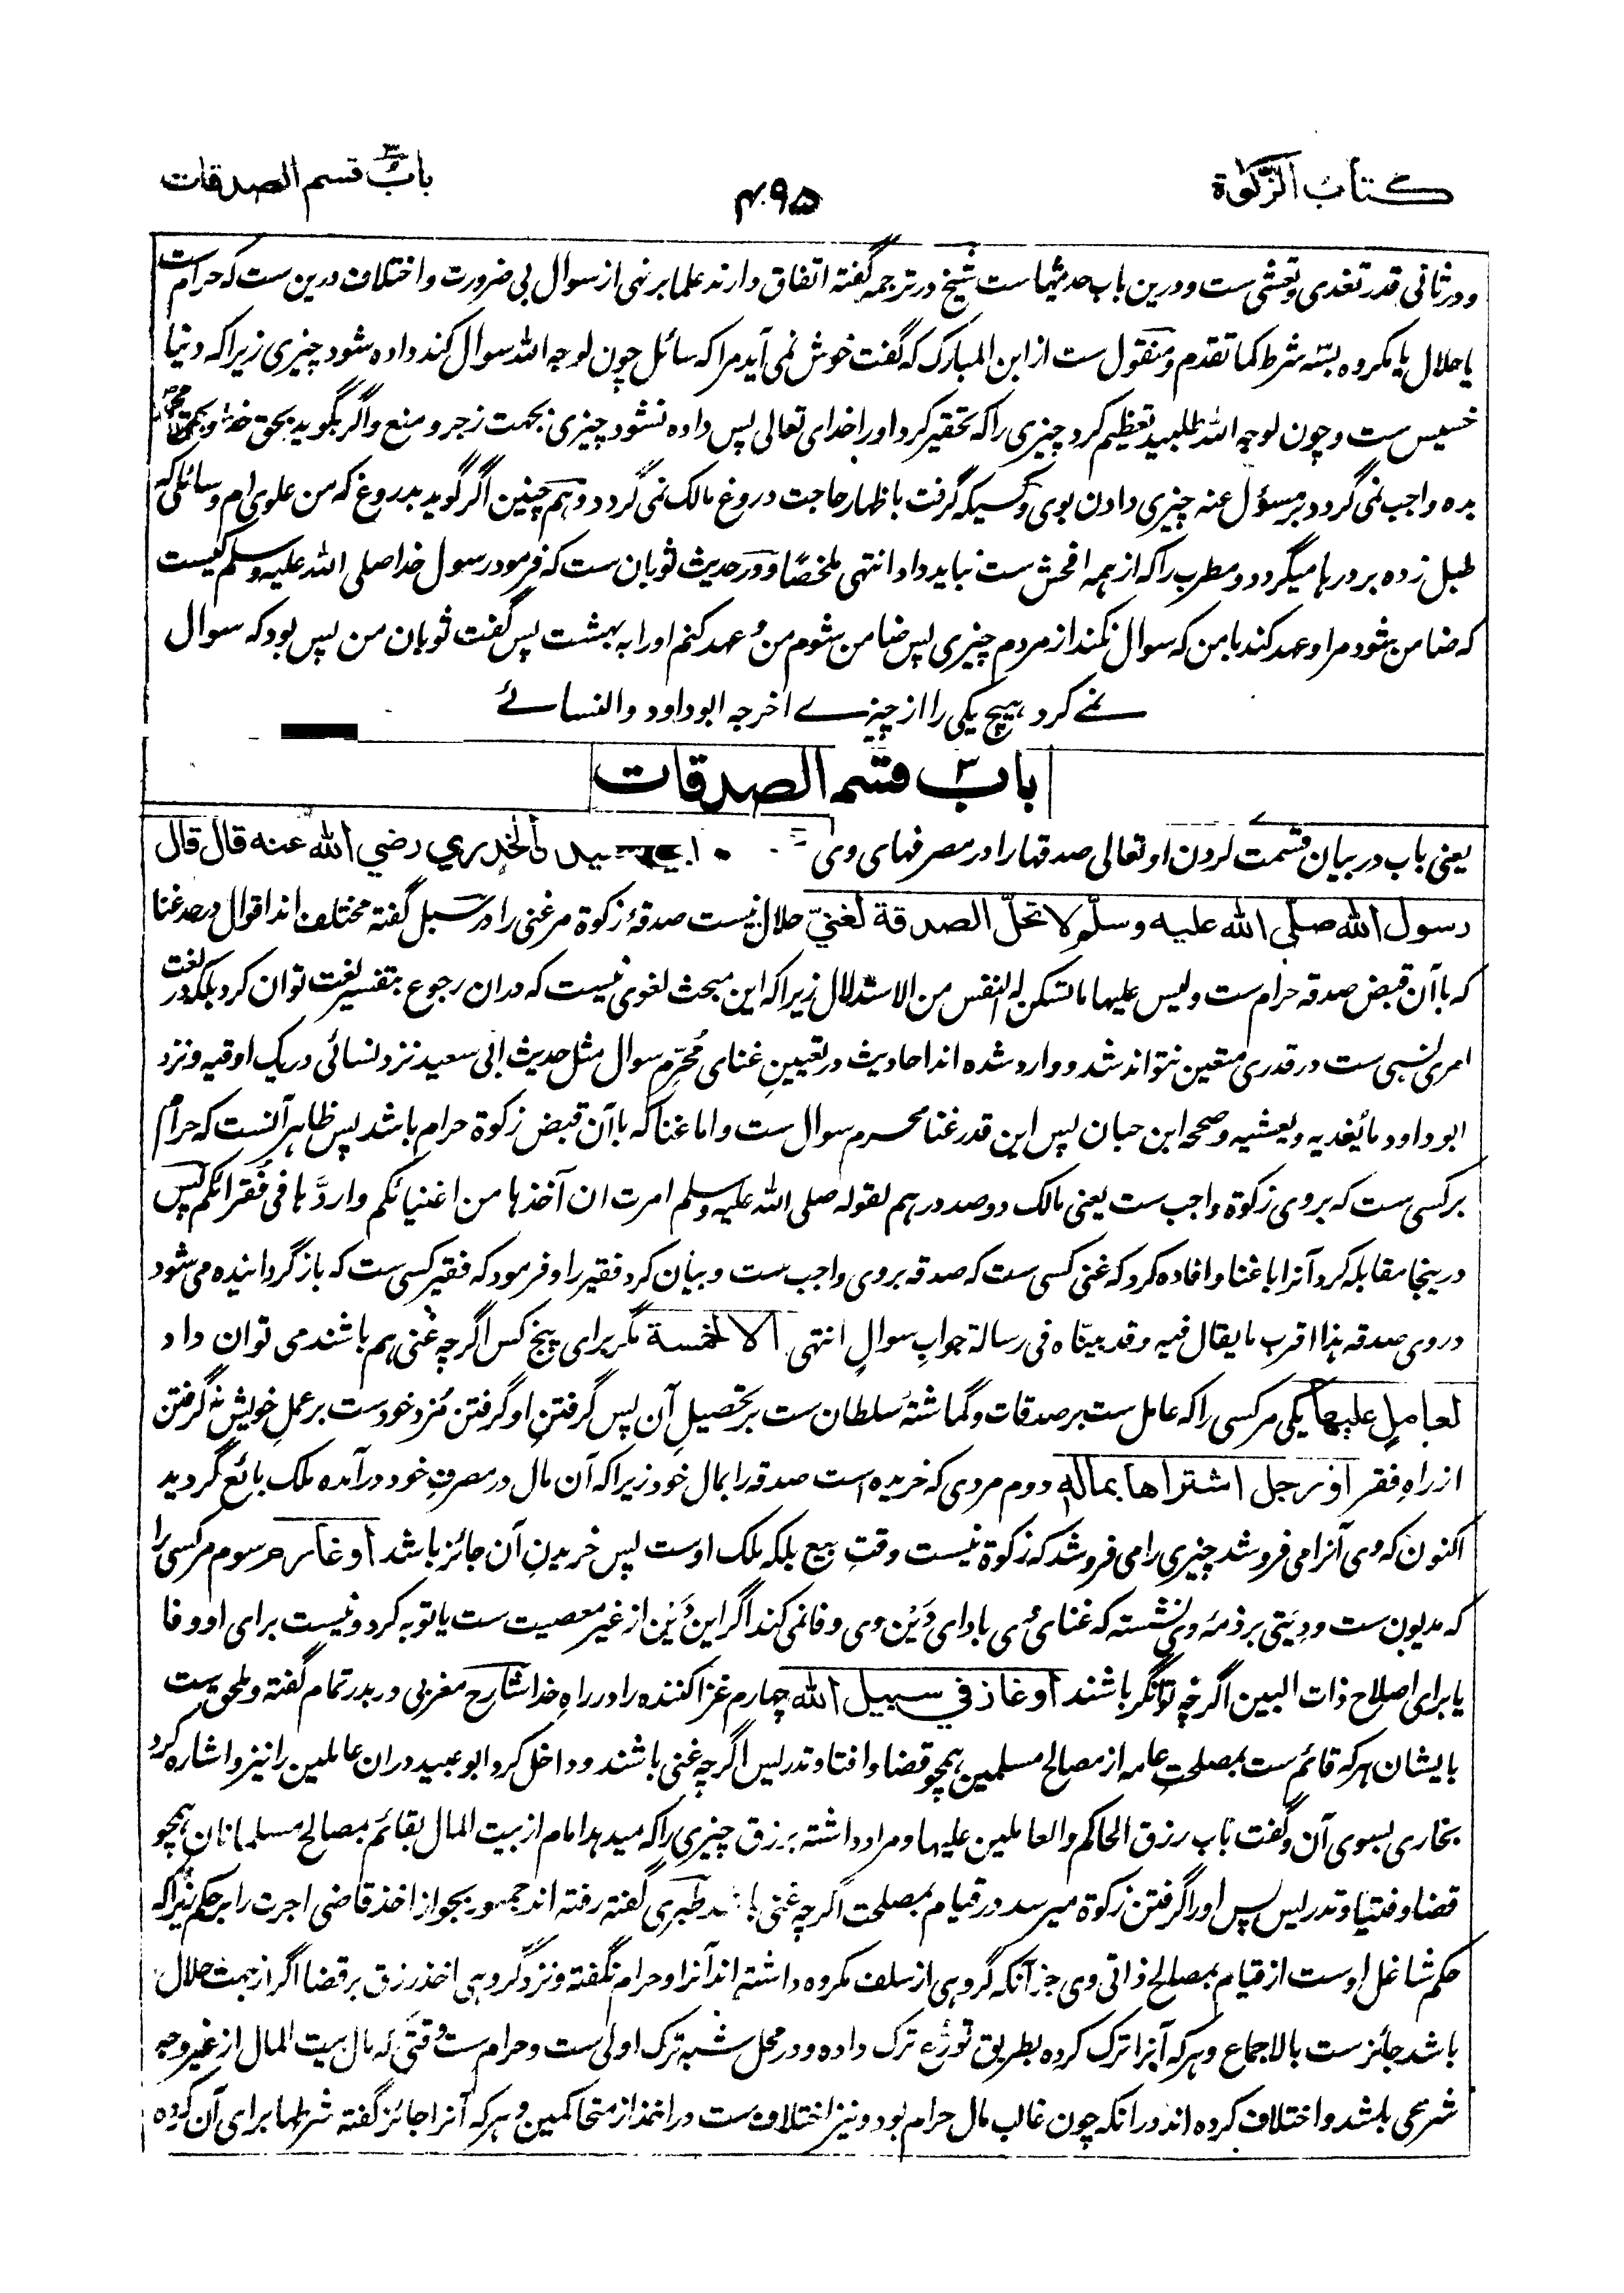 كتاب الزكوة
۴۹۵
باب قسم الصدقات
ودر ثانی قدر تغدی و تعشی ست و درین باب حدیثهاست شیخ در ترجمه گفته اتفاق دارند علما بر نهی از سوال بی ضرورت و اختلاف درین ست که حرام ست
یا حلال یا مکروه بسه شرط کما تقدم و منقول ست از ابن المبارک که گفت خوش نمی آید مرا که سائل چون لوجه الله سوال کند داده شود چیزی زیرا که دنیا
خسیس ست و چون لوجه الله طلبید تعظیم کرد چیزی را که تحقیر کرد او را خدای تعالی پس داده نشود چیزی بجهت زجر و منع و اگر بگوید بحق خدا و بحق محمد
بده واجب نمی گردد بر مسؤل عنه چیزی دادن بوی و کسیکه گرفت باظهار حاجت دروغ مالک نمی گردد و هم چنین اگر گوید بدروغ که من علوی ام و سائلی که
طبل زده بر درها میگردد و مطرب را که از همه افحش ست نباید داد انتهی ملخصًا و در حدیث ثوبان ست که فرمود رسول خدا صلی الله علیه وسلم کیست
که ضامن شود مرا و عهد کند با من که سوال نکند از مردم چیزی پس ضامن شوم من و عهد کنم او را به بهشت پس گفت ثوبان من پس بود که سوال
نمی کرد هیچ یکی را از چیزے اخرجه ابوداود والنسائے
باب قسم الصدقات
یعنی باب در بیان قسمت کردن او تعالی صدقها را در مصرفهای وی ابی سعید الخدري رضي الله عنه قال قال
رسول الله صلى الله عليه وسلم لا تحل الصدقة لغني حلال نیست صدقۀ زکوة مر غنی را در سبل گفته مختلف اند اقوال در حد غنا
که با آن قبض صدقه حرام ست ولیس علیها ما تسکن له النفس من الاستدلال زیرا که این مبحث لغوی نیست که دران رجوع بتفسیر لغت توان کرد بلکه در لغت
امری نسبی ست در قدری متعین نتواند شد و وارد شده اند احادیث در تعیین غنای مُحرّم سوال مثل حدیث ابی سعید نزد نسائی در یک اوقیه و نزد
ابوداود ما یُغدیه و یعشیه و صححه ابن حبان پس این قدر غنا محرم سوال ست و اما غنا که با آن قبض زکوة حرام باشد پس ظاهر آنست که حرام
بر کسی ست که بر وی زکوة واجب ست یعنی مالک دو صد درهم لقوله صلی الله علیه وسلم امرت ان آخذها من اغنیائکم واردّها فی فقرائکم پس
درینجا مقابله کرد آنرا با غنا و افاده کرد که غنی کسی ست که صدقه بر وی واجب ست و بیان کرد فقیر را و فرمود که فقیر کسی ست که بازگردانیده می شود
در وی صدقه هذا اقرب ما یقال فیه وقد بیناه فی رسالة جواب سوال انتهی الا لخمسة مگر برای پنج کس اگرچه غنی هم باشند می توان داد
لعامل عليها یکی مر کسی را که عامل ست بر صدقات و گماشتۀ سلطان ست بر تحصیل آن پس گرفتن او گرفتن مُزد خود ست بر عمل خویش نه گرفتن
از راهِ فقر او رجل اشتراها بماله دوم مردی که خریده است صدقه را بمال خود زیرا که آن مال در مصرف خود درآمده ملک بائع گردید
اکنون که وی آنرا می فروشد چیزی را می فروشد که زکوة نیست وقتِ بیع بلکه ملک اوست پس خریدنِ آن جائز باشد او غارم سوم مر کسی را
که مدیون ست و دینی بر ذمۀ وی نشسته که غنای وی بادای دَین وی وفا نمی کند اگر این دَین از غیر معصیت ست یا توبه کرد و نیست برای او وفا
یا برای اصلاح ذات البین اگرچه توانگر باشند او غاز في سبيل الله چهارم غزا کننده را در راهِ خدا شارح مغربی در بدر تمام گفته و ملحق ست
بایشان هر که قائم ست بمصلحت عامه از مصالح مسلمین همچو قضا و افتا و تدریس اگرچه غنی باشند و داخل کرد ابوعبید دران عاملین را نیز و اشاره کرد
بخاری بسوی آن و گفت باب رزق الحاکم والعاملین علیها و مراد داشته برزق چیزی را که میدهد امام از بیت المال بقائم بمصالح مسلمانان همچو
قضا و فتیا و تدریس پس او را گرفتن زکوة میرسد در قیام بمصلحت اگرچه غنی باشد طبری گفته رفته اند جمهور بجواز اخذ قاضی اجرت را بر حکم زیرا که
حکم شاغل اوست از قیام بمصالح ذاتی وی جز آنکه گروهی از سلف مکروه داشته اند آنرا و حرام نگفته و نزد گروهی اخذ رزق بر قضا اگر از جهت حلال
باشد جائزست بالاجماع و هر که آنرا ترک کرده بطریق تورّع ترک داده و در محل شبه ترک اولی ست و حرام ست وقتی که مال بیت المال از غیر وجه
شرعی باشد و اختلاف کرده اند در آنکه چون غالب مال حرام بود و نیز اختلاف ست در اخذ از متحاکمین و هر که آنرا جائز گفته شرطها برای آن کرده